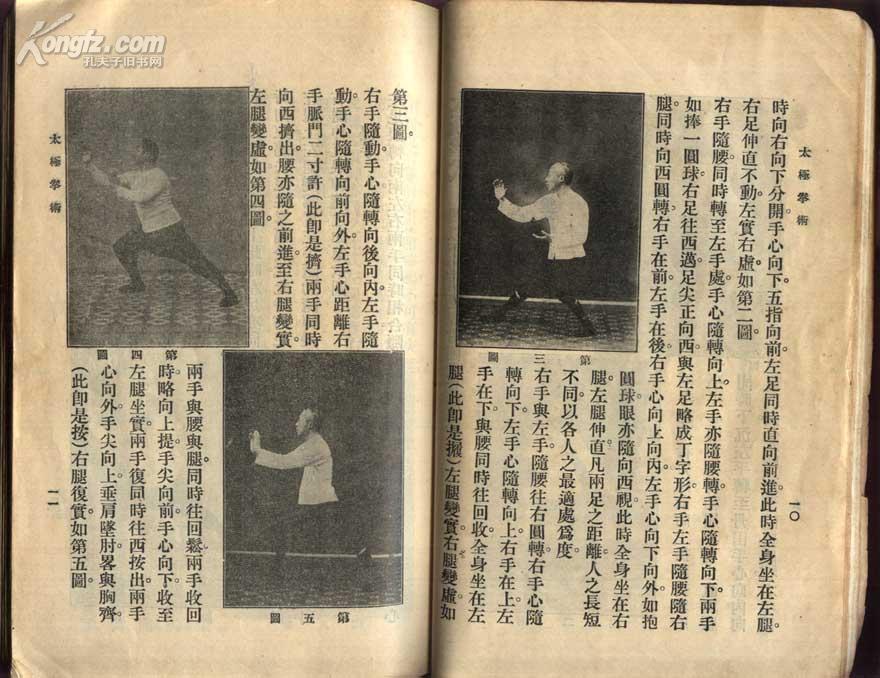 Kongfz.com
孔夫子旧书网
太極拳術
一〇
時向右向下分開。手心向下。五指向前。左足同時直向前進。此時全身坐在左腿。
右足伸直不動。左實右虛。如第二圖。
右手隨腰同時轉至左手處。手心隨轉向上。左手亦隨腰轉。手心隨轉向下。兩手
如捧一圓球。右足往西邁。足尖正向西。與左足略成丁字形。右手左手隨腰隨右
腿。同時向西圓轉。右手在前。左手在後。右手心向上向內。左手心向下向外。如抱
圓球。眼亦隨向西視。此時全身坐在右
腿。左腿伸直。凡兩足之距離。人之長短
不同。以各人之最適處為度。
右手與左手隨腰往右圓轉。右手心隨
轉向下。左手心隨轉向上。右手在上。左
手在下。與腰同時往回收。全身坐在左
腿(此卽是攦)左腿變實。右腿變虛。如
第三圖
太極拳術
一一
第三圖。
右手隨動。手心隨轉向後向內。左手隨
動。手心隨轉向前向外。左手心距離右
手脈門二寸許(此卽是擠)兩手同時
向西擠出。腰亦隨之前進。至右腿變實。
左腿變虛。如第四圖。
第四圖
兩手與腰與腿同時往回鬆。兩手收回
時。略向上提。手尖向前。手心向下。收至
左腿坐實。兩手復同時往西按出。兩手
心向外。手尖向上。垂肩墜肘。畧與胸齊。
(此卽是按)右腿復實。如第五圖。
第五圖